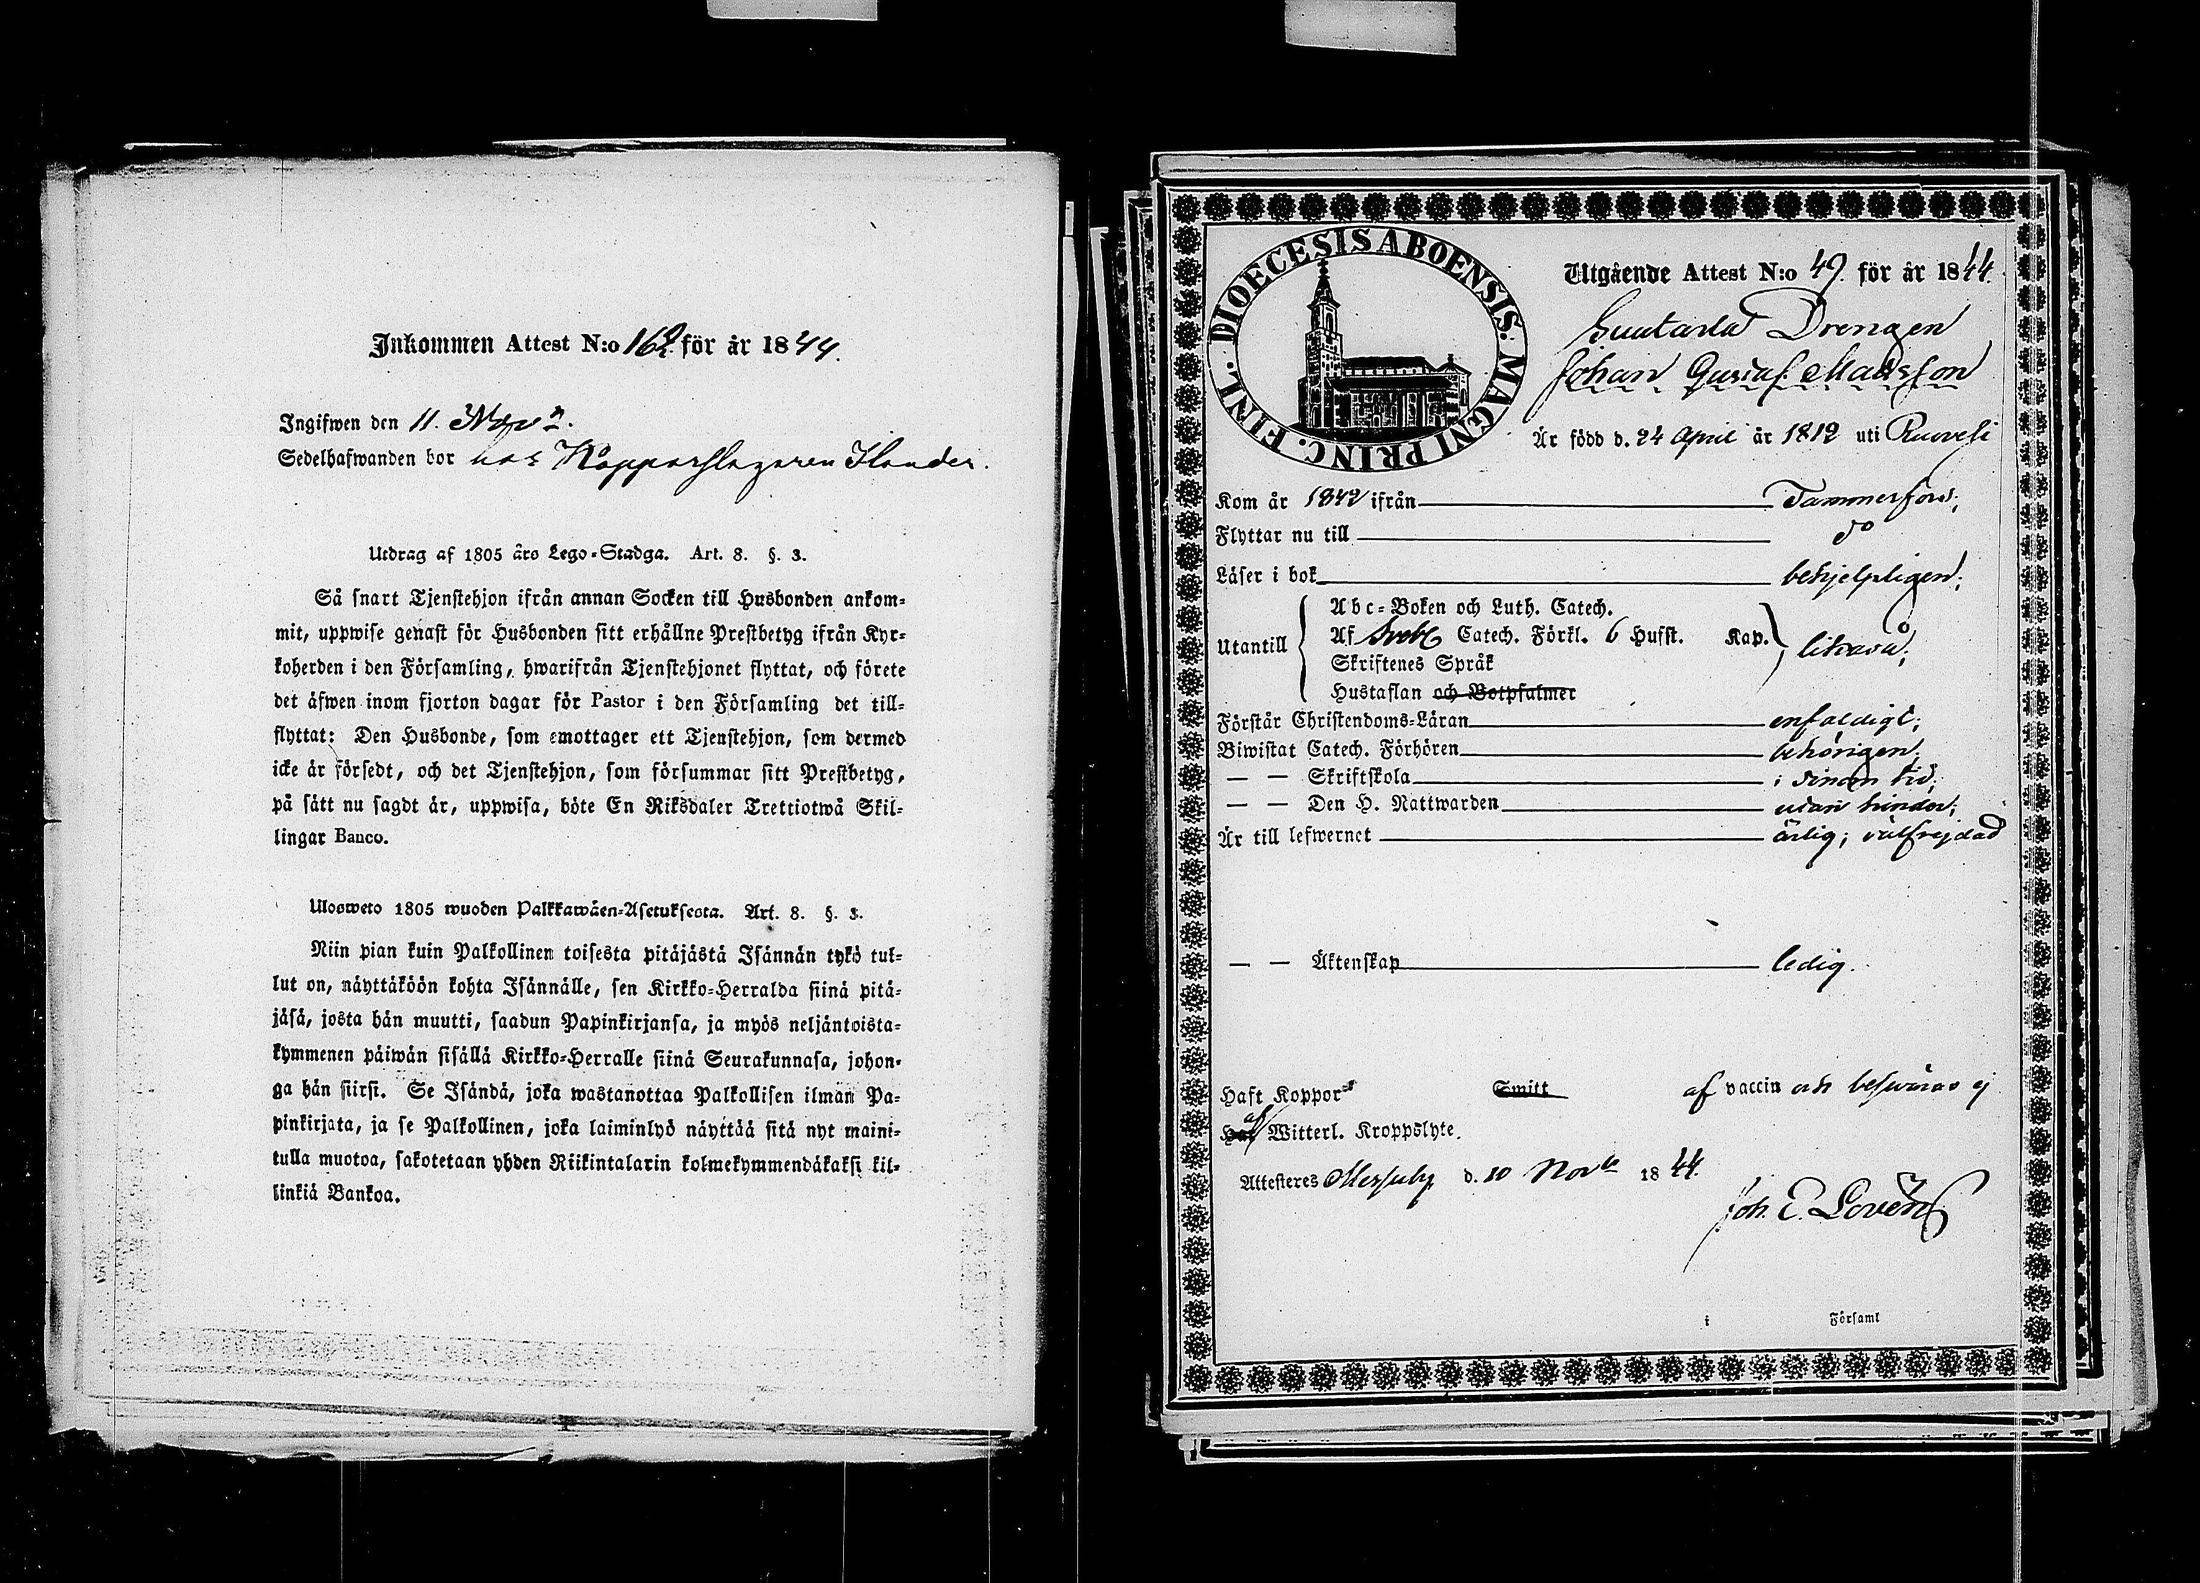 Inkommen Attest N:o 162 för år 1844.
Ingifwen den 11. Nov.
Sedelhafwanden bor hos Kopparslagaren Ilander.
Utdrag af 1805 års Lego-Stadga. Art. 8. §. 3.
Så snart Tjenstehjon ifrån annan Socken till Husbonden ankom-
mit, uppwise genast för Husbonden sitt erhållne Prestbetyg ifrån Kyr-
koherden i den Församling, hwarifrån Tjenstehjonet flyttat, och förete
det äfwen inom fjorton dagar för Pastor i den Församling det till-
flyttat: Den Husbonde, som emottager ett Tjenstehjon, som dermed
icke är försedt, och det Tjenstehjon, som försummar sitt Prestbetyg,
på sätt nu sagdt är, uppwisa, böte En Riksdaler Trettiotwå Skil-
lingar Banco.
Ulosweto 1805 wuoden Palkkawäen-Asetuksesta. Art. 8. §. 3.
Niin pian kuin Palkollinen toisesta pitäjästä Isännän tykö tul-
lut on, näyttäköön kohta Isännälle, sen Kirkko-Herralda siinä pitä-
jäsä, josta hän muutti, saadun Papinkirjansa, ja myös neljäntoista-
kymmenen päiwän sisällä Kirkko-Herralle siinä Seurakunnasa, johon-
ga hän siirsi. Se Isändä, joka wastanottaa Palkollisen ilman Pa-
pinkirjata, ja se Palkollinen, joka laiminlyö näyttää sitä nyt maini-
tulla muotoa, sakotetaan yhden Riikintalarin kolmekymmendäkaksi kil-
linkiä Bankoa.
DIOECESIS ABOENSIS. MAGNI PRINC. FINL.
Utgående Attest N:o 49. för år 1844.
Drengen
Johan Gustaf Matsson
Är född d. 24 April år 1812 uti Ruovesi
Kom år 1842 ifrån Tammerfors;
Flyttar nu till do
Läser i bok behjelpligen;
Utantill
Abc-Boken och Luth. Catech.
Af Sveb. Catech. Förkl. 6 Hufst. Kap.
Skriftenes Språk
Hustaflan och Botpsalmer
Förstår Christendoms-Läran enfaldigt;
Biwistat Catech. Förhören behörigen;
— — Skriftskola i sinom tid;
— — Den H. Nattwarden utan hinder;
Är till lefwernet ärlig; välfrejdad
— — Äktenskap ledig.
Haft Koppor Smitt af vaccin och besväras ej
af Witterl. Kroppslyte.
Attesteres Messuby d. 10 Nov 1844.
Joh. E. Lovén
i Församl